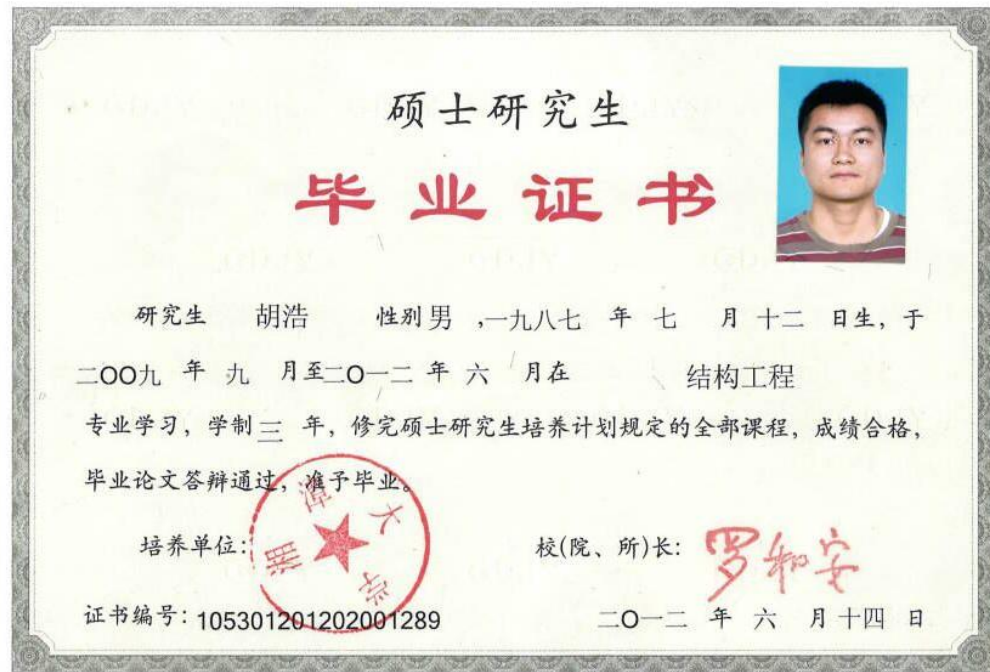 硕士研究生
毕业证书
研究生 胡浩 性别 男 ,一九八七 年 七 月 十二 日生，于
二OO九 年 九 月至二O一二 年 六 月在 结构工程
专业学习，学制 三 年，修完硕士研究生培养计划规定的全部课程，成绩合格，
毕业论文答辩通过，准予毕业。
培养单位：
湘潭大学
校(院、所)长：
罗和安
证书编号：105301201202001289
二O一二 年 六 月 十四 日